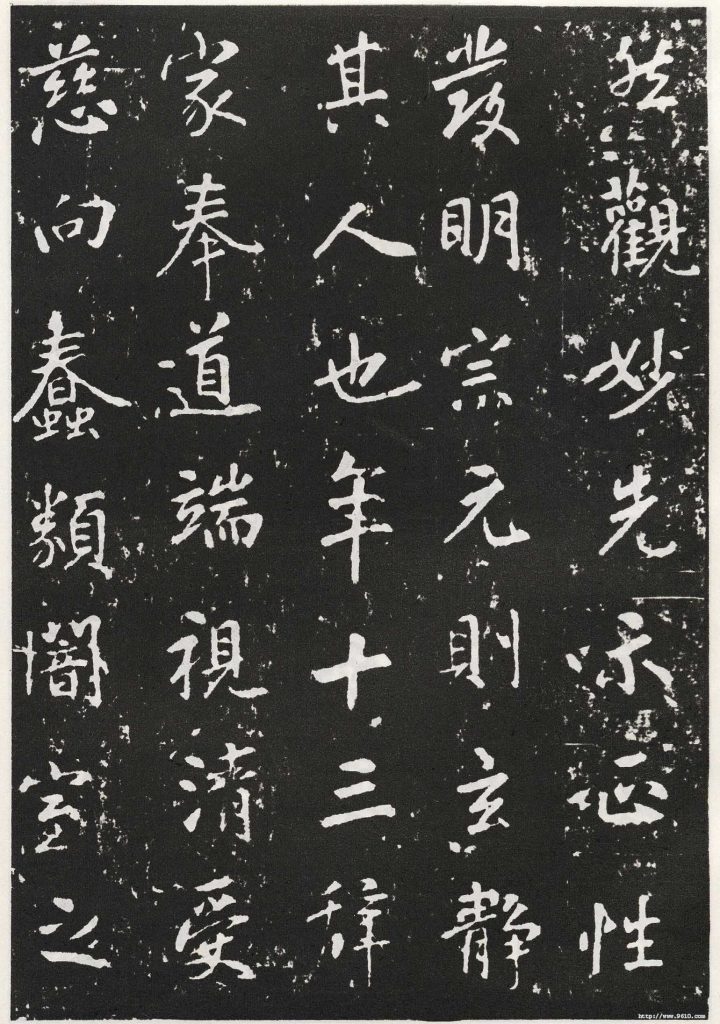 然觀妙先正性
發明宗元則玄靜
其人也年十三辞
家奉道端視清受
慈向蠢類闇室之
http://www.9610.com